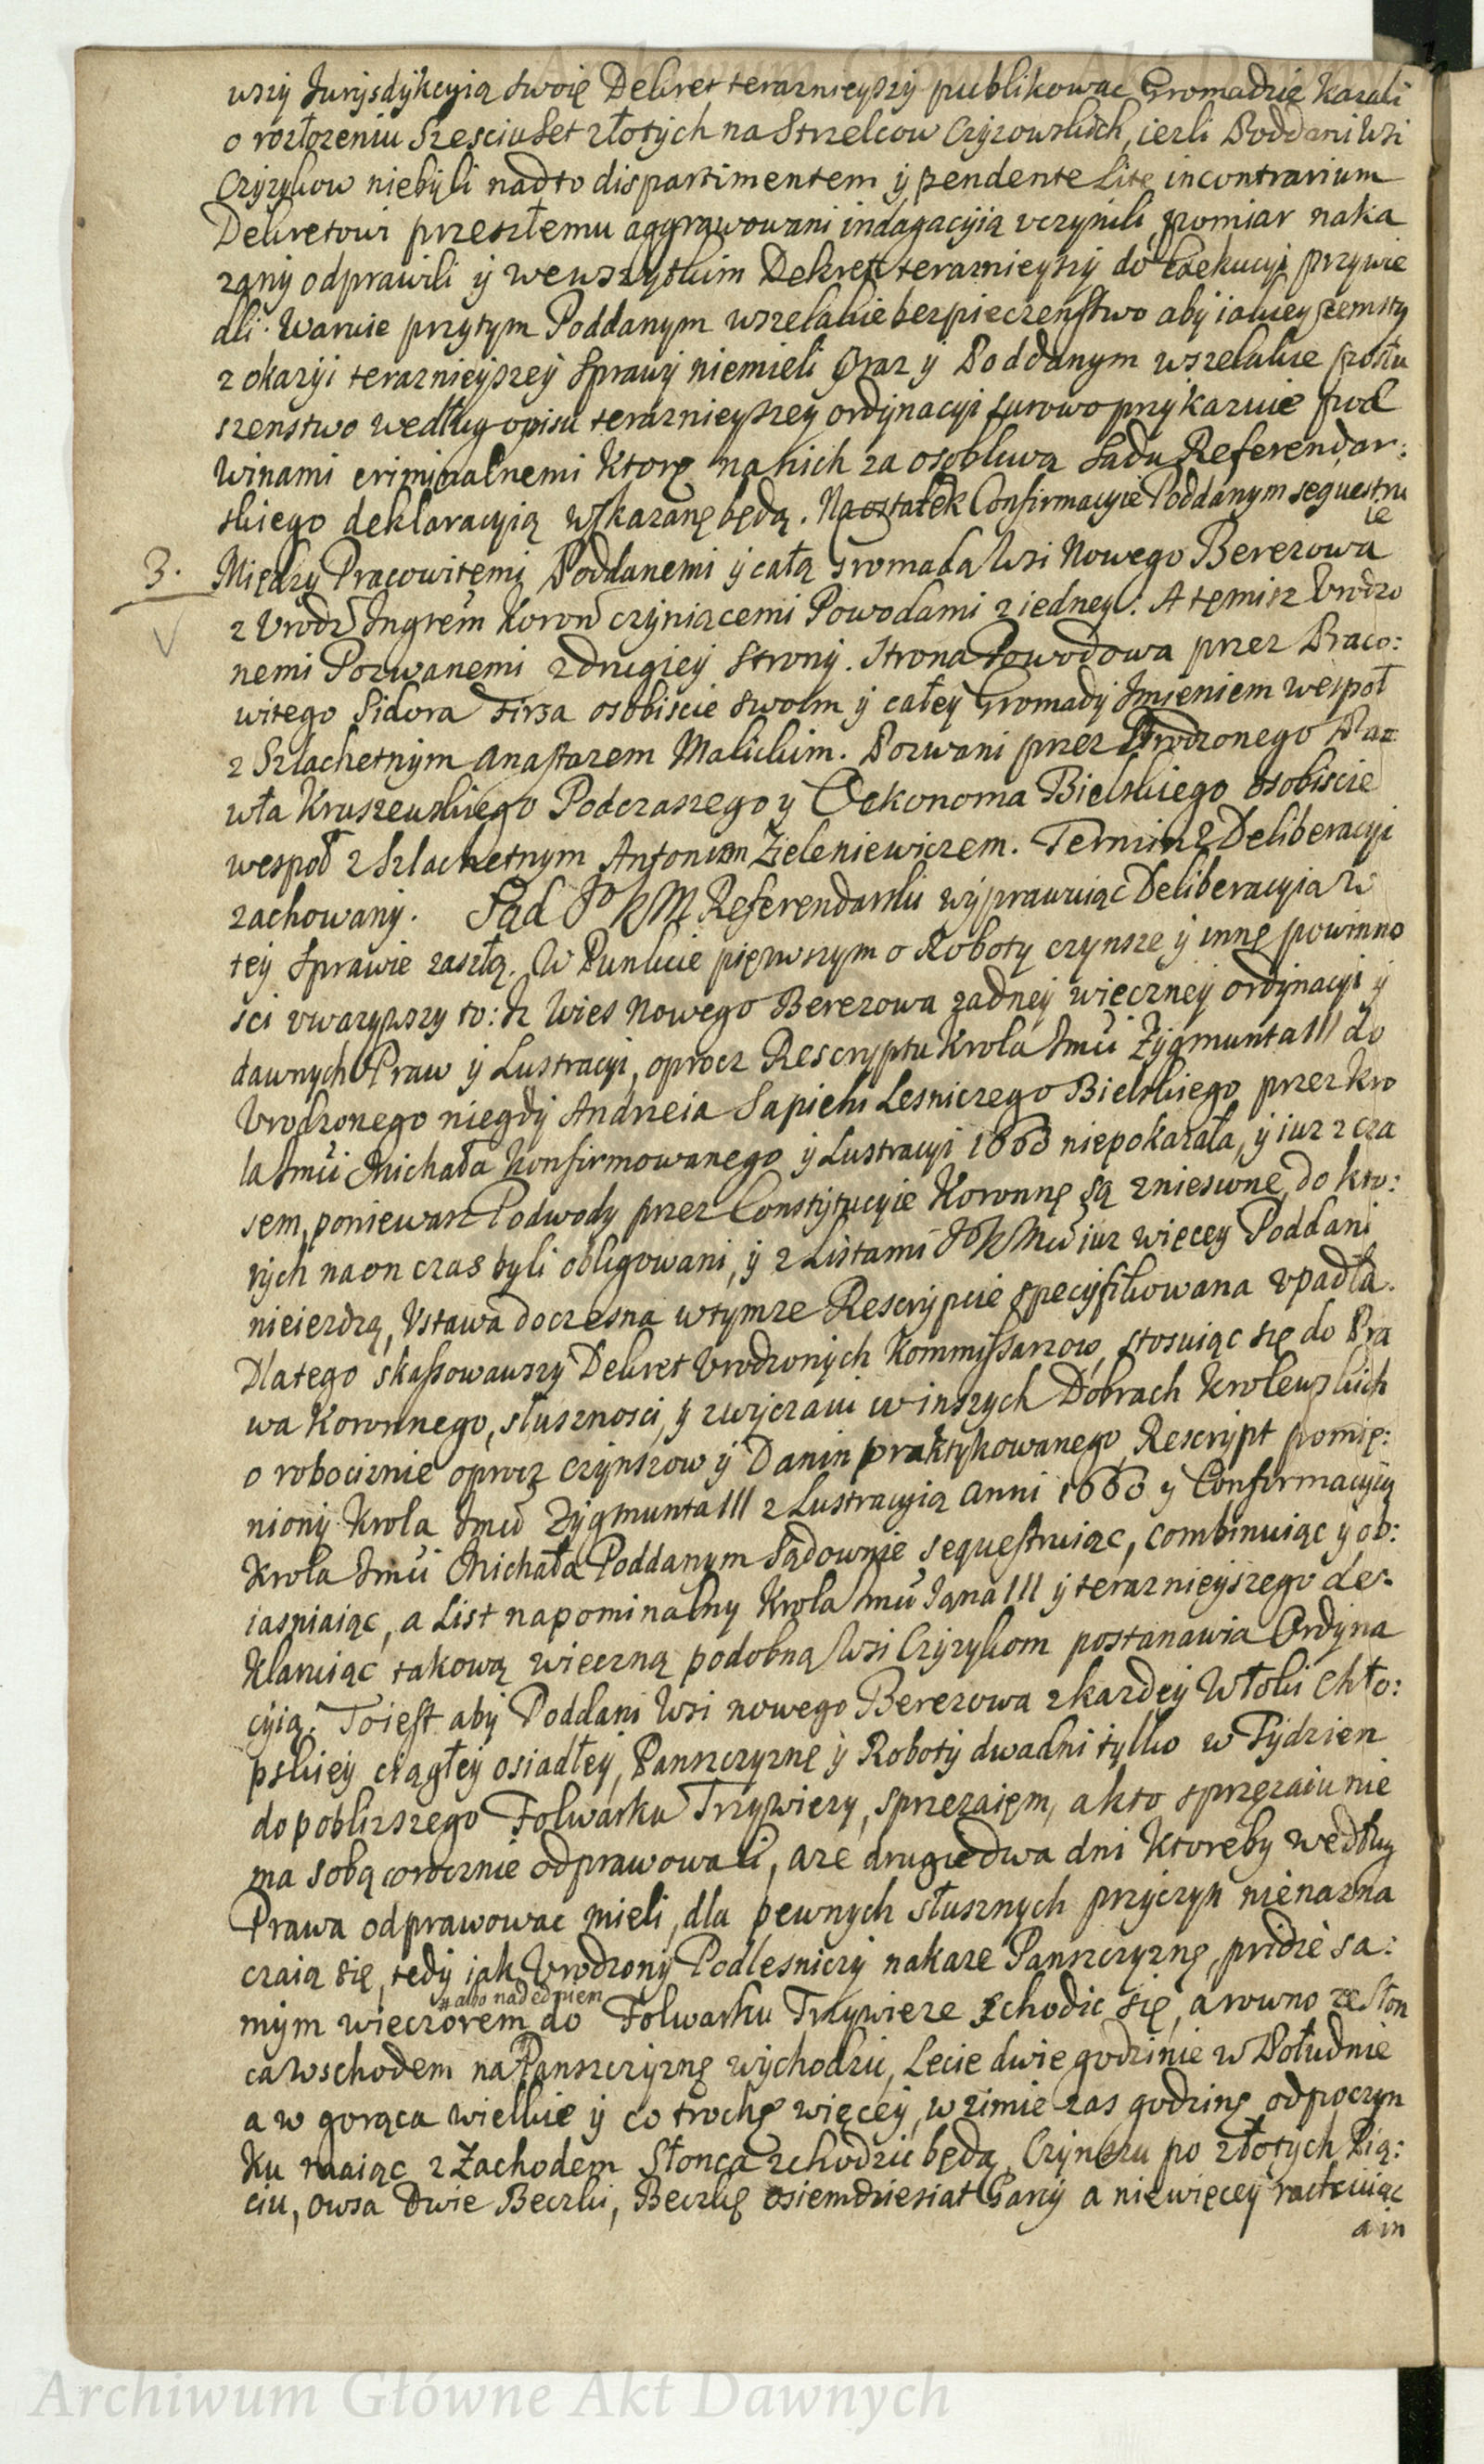 Archiwum Główne Akt Dawnych
wszy Jurysdykcyią swoię Dekret terarnieyszy publikowac Gromadzie kazali
o rozłozeniu Szesciuset złotych na Strzelcow Czyzowskich, iezli Poddani Wsi
Czyzykow niebyli nadto dispartimentem y pendente Lite incontrarium
Dekretowi przeszłemu aggrawowani indagacyią vczynili, pomiar naka
zany odprawili y wewszytkim Dekret teraznieyszy do Exekucyi przywie
dli. Waruie przytym Poddanym wszelakie bezpieczenstwo aby iakiey zemsty
z okazyi teraznieyszey Sprawy niemieli Oraz y Poddanym wszelakie posłu
szenstwo według opisu teraznieyszey ordynacyi surowo przykazuie pod
winami criminalnemi ktore na nich za osobliwą Sądu Referendar:
skiego deklaracyią wskazane będą. Naostatek Confirmacyie Poddanym sequestru
ie
3. Między Pracowitemi Poddanemi y całą Gromadą Wsi Nowego Berezowa
z Vrodz Instygtem Koron czyniącemi Powodami z iedney. A temisz Vrodzo
nemi Pozwanemi zdrugiey Strony. Strona Powodowa przez Praco:
witego Sidora Firsa osobiscie swoim y całey Gromady Imieniem wespoł
z Szlachetnym Anastazem Malickim. Pozwani przez Vrodzonego Pa
wła Kruszewskiego Podczaszego y Oekonoma Bielskiego osobiscie
wespoł z Szlachetnym Antonim Zieleniewiczem. Termin z Deliberacyi
zachowany. Sąd JoKM Referendarski wyprawuiąc Deliberacyią w
tey Sprawie zaszłą. W Punkcie pierwszym o Roboty czynsze y inne powinno
sci vwazywszy to: Iz Wies Nowego Berezowa zadney wieczney ordynacyi y
dawnych Praw y Lustracyi, oprocz Rescryptu Krola Jmci Zygmunta III do
Vrodzonego niegdy Andrzeia Sapiehi Lesniczego Bielskiego przez Kro
la Jmci Michała konfirmowanego y Lustracyi 1660 niepokazała, y iuz z cza
sem, poniewasz Podwody przez Constytucyie Koronne są zniesione, do kto:
rych naon czas byli obligowani, y z Listami JoKMci iuz więcey Poddani
nieiezdzą, Vstawa doczesna wtymze Rescrypcie specyfikowana vpadła.
Dlatego skassowawszy Dekret Vrodzonych Kommissarzow, stosuiąc się do Pra
wa Koronnego, słusznosci, y zwyczaiu w inszych Dobrach Krolewskich
o robociznie oprocz czynszow y Danin praktykowanego, Rescrypt pomie:
niony Krola Jmci Zygmunta III z Lustracyią Anni 1660 y Confirmacyią
Krola Jmci Michała Poddanym Sądownie sequestruiąc, combinuiąc y ob:
iasniaiąc, a List napominalny Krola Jmci Jana III y teraznieyszego de:
klaruiąc takową wieczną podobną Wsi Czyzykom postanawia Ordyna
cyią. Toiest aby Poddani Wsi nowego Berezowa z kazdey Włoki Chło:
pskiey ciągłey osiadłey, Panszczyznę y Roboty dwadni tylko w Tydzien
do poblizszego Folwarku Trzywiezy, sprzezaiem, a kto sprzęzaiu nie
ma sobą corocznie odprawowali, aze drugie dwa dni ktoreby według
Prawa odprawowac mieli, dla pewnych słusznych przyczyn nienazna
czaią się, tedy iak Vrodzony Podlesniczy nakaze Panszczyznę, pridie sa:
# albo nadedniem
mym wieczorem do Folwarku Trzywieze schodzic się, a rowno ze Słon
ca Wschodem na Panszczyznę wychodzić, Lecie dwie godzinie w Południe
a w gorąca wielkie y co trochę więcey, w zimie zas godzinę odpoczyn
ku maiąc z Zachodem Słonca zchodzic będą, Czynszu po złotych Pią:
ciu, owsa Dwie Beczki, Beczkę osiemdziesiat Garcy a niewięcey rachuiąc
a in
Archiwum Główne Akt Dawnych